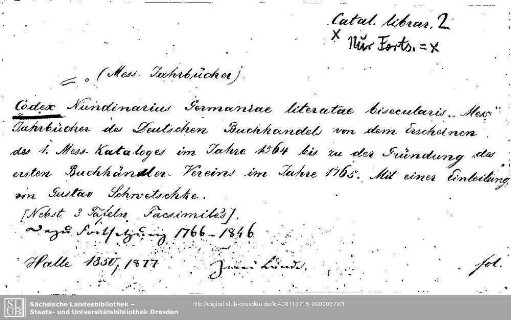 Catal. librar. 2
x Nur Forts. = x
(Mess. Jahrbücher)
Codex Nundinarius Germaniae literatae bisecularis. „Mess-
Jahrbücher des Deutschen Buchhandels von dem Erscheinen
des 1. Mess-Kataloges im Jahre 1564 bis zu der Gründung des
ersten Buchhändler-Vereins im Jahre 1765. Mit einer Einleitung
von Gustav Schwetschke.
[Nebst 3 Tafeln Facsimiles].
Dazu Fortsetzung 1766-1846
Halle 1850, 1877 Zwei Bände fol.
SLUB
Sächsische Landesbibliothek –
Staats- und Universitätsbibliothek Dresden